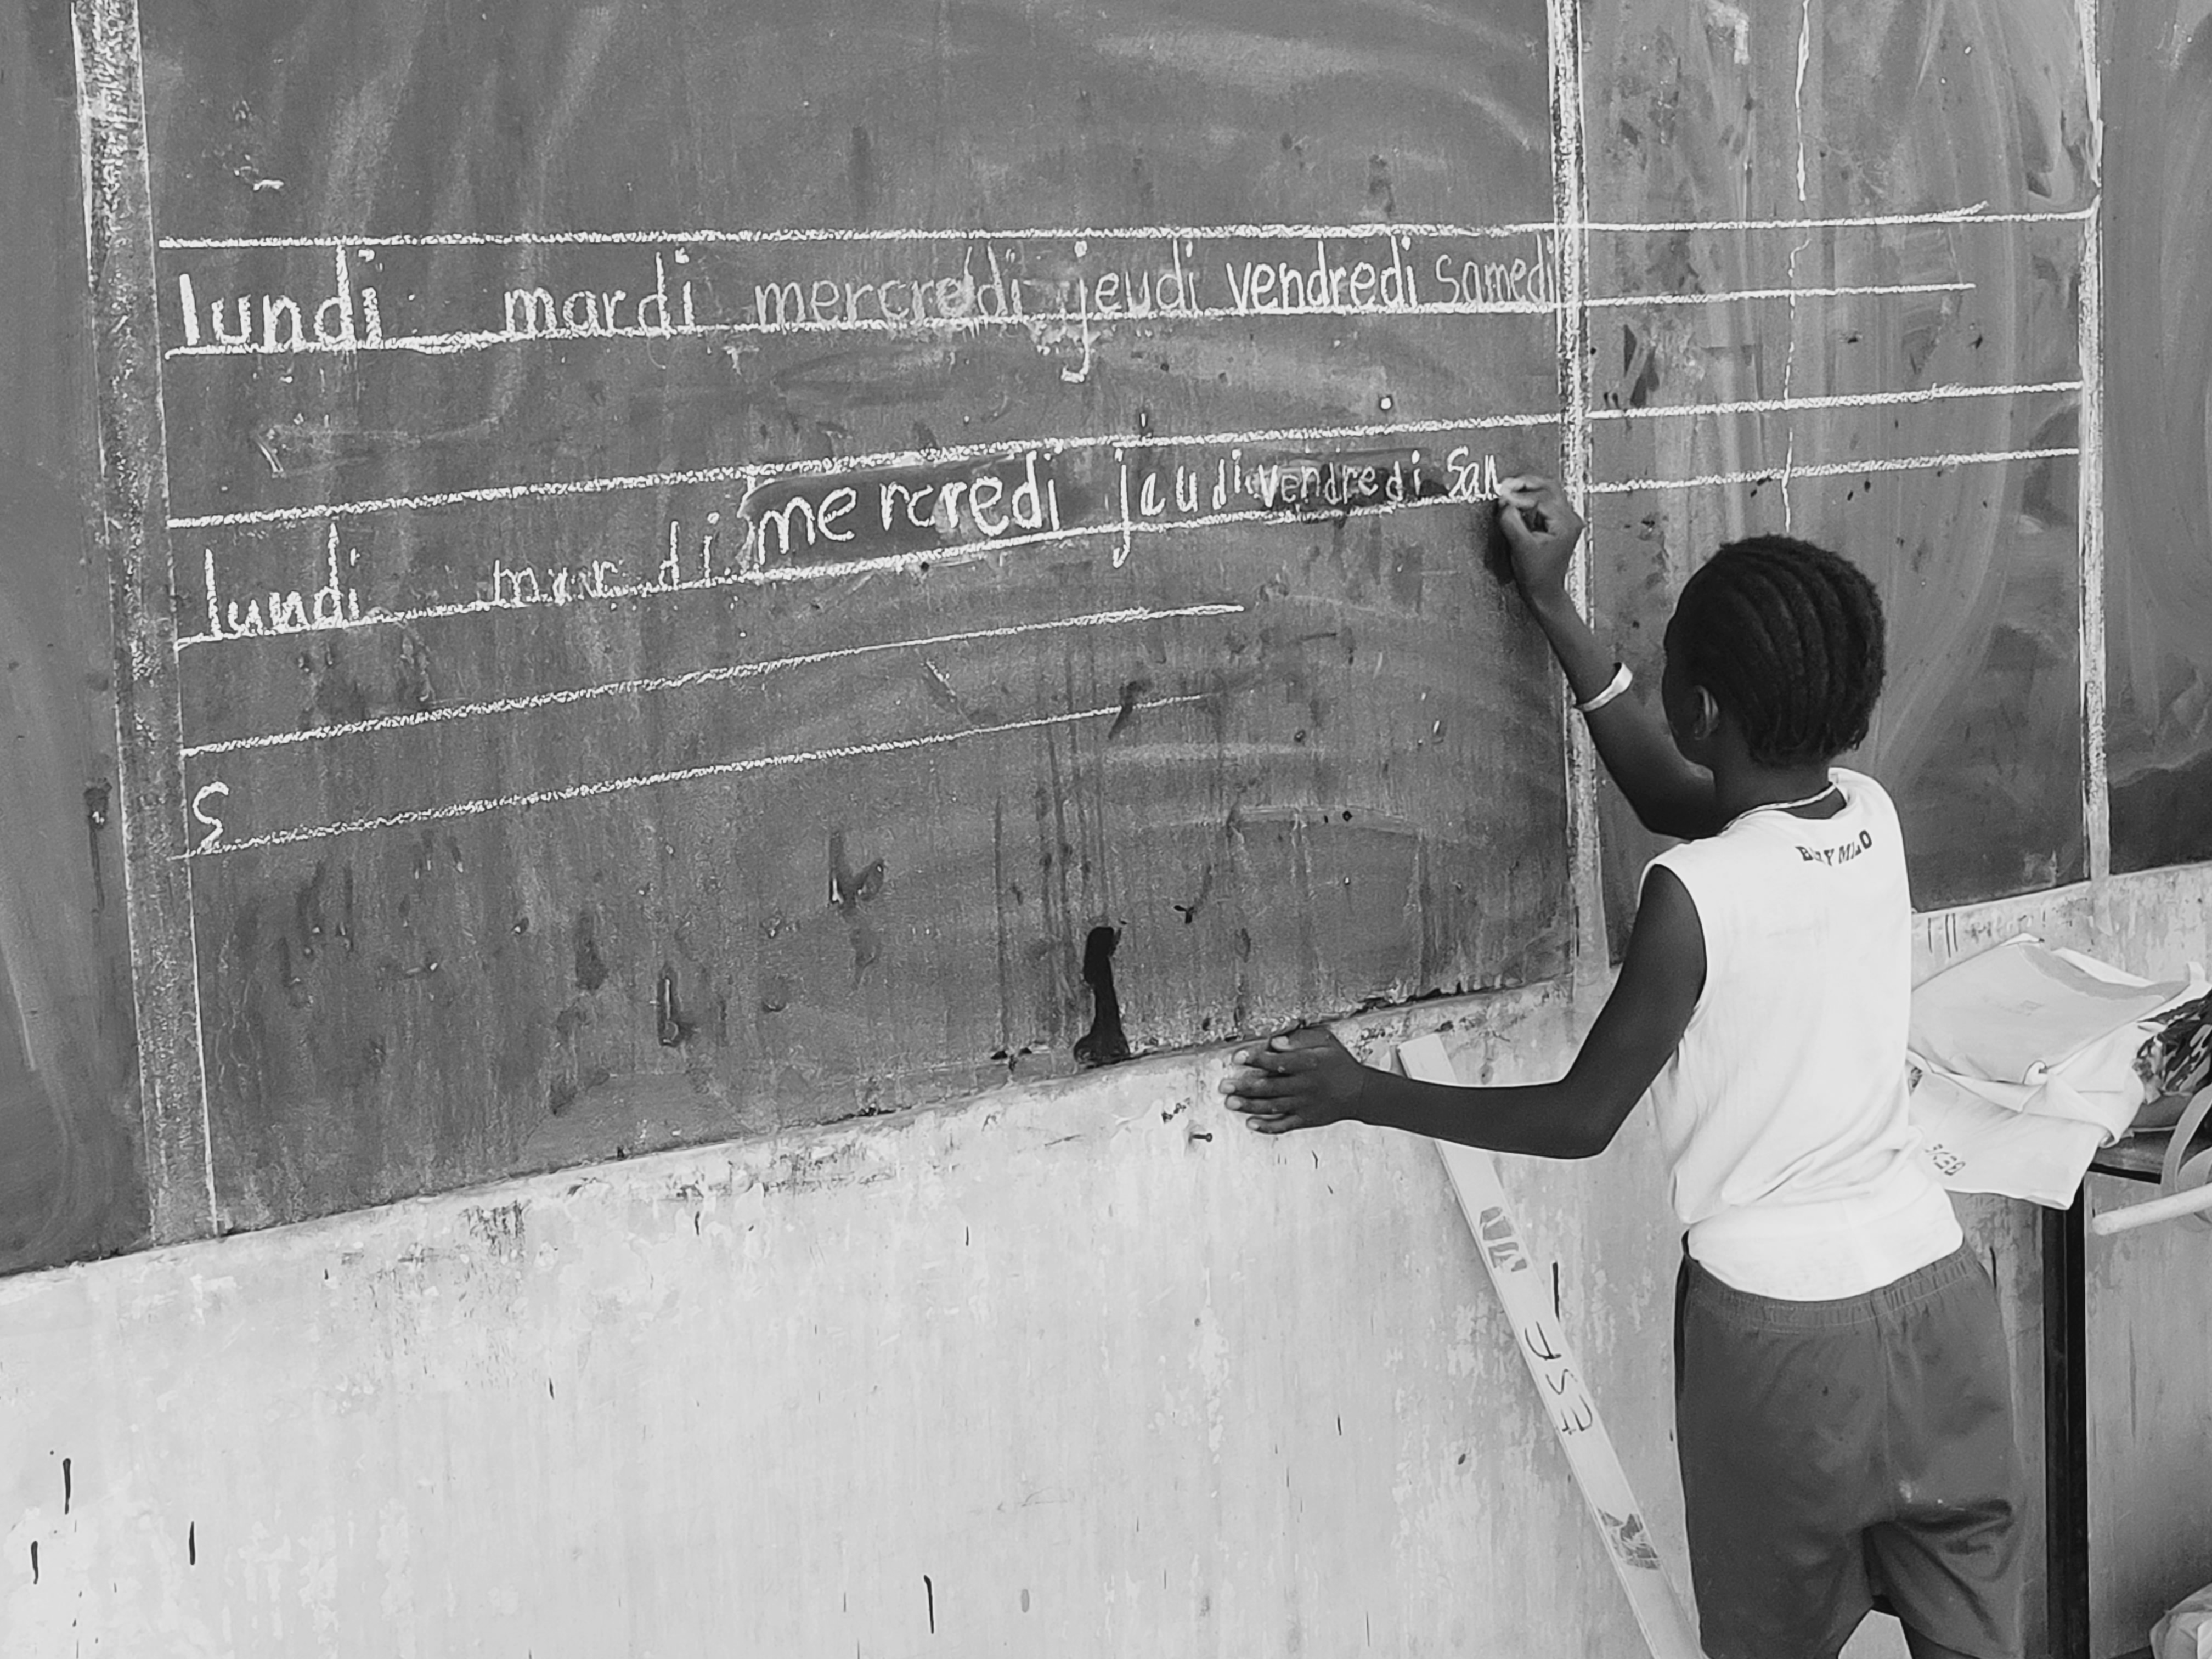 lundi mardi mercredi jeudi vendredi samedi
lundi mardi mercredi jeudi vendredi Sam
S